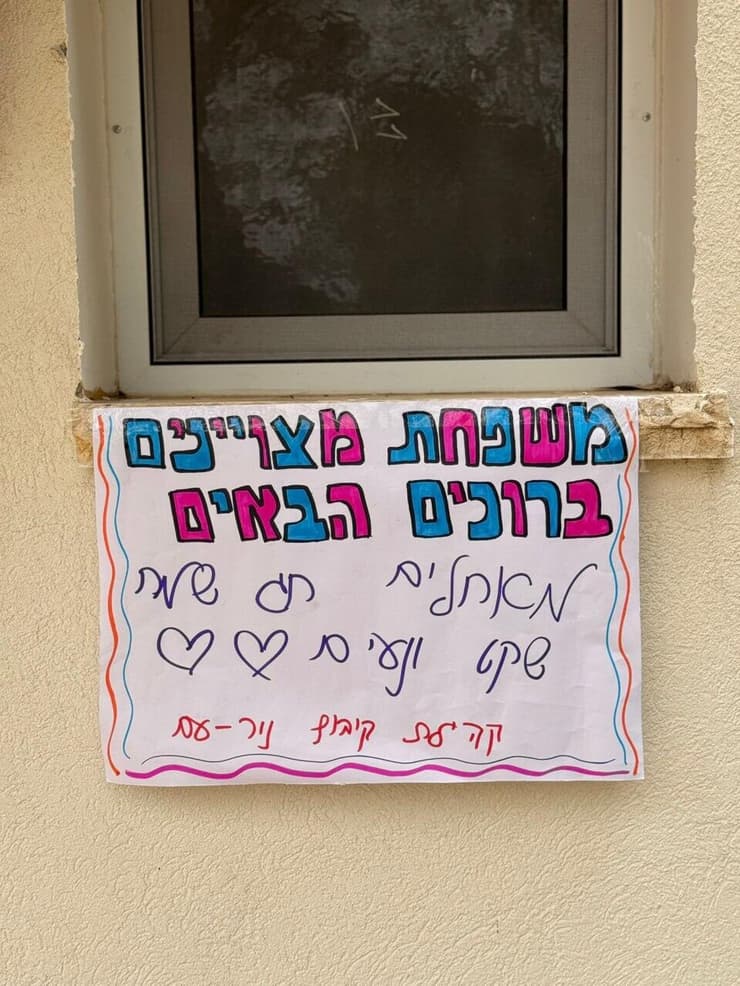 משפחת מצויינים
ברוכים הבאים
מאחלים חג שמח
שקט ונעים
קהילת קיבוץ ניר-עם